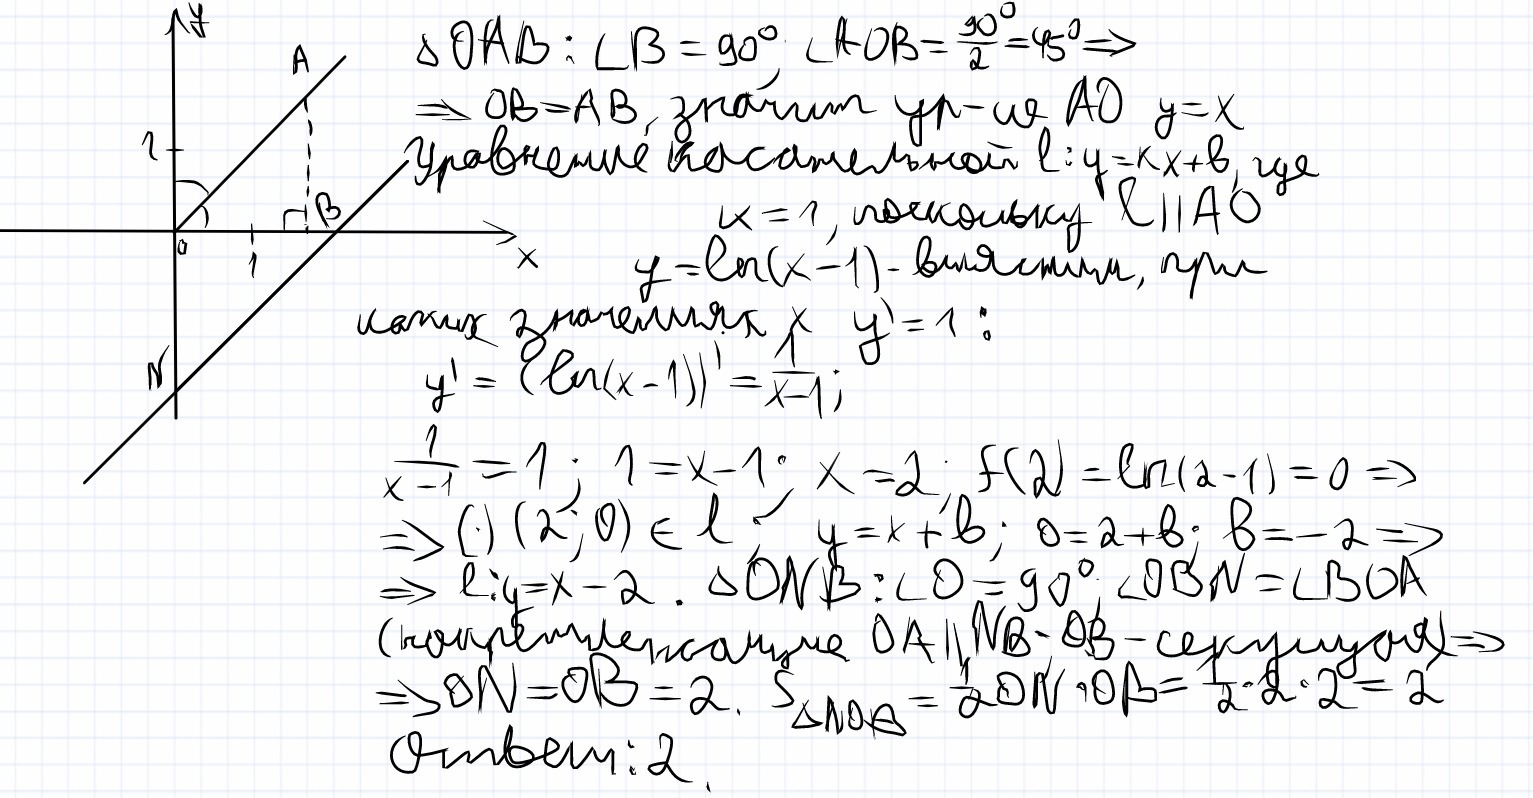 y
A
1
B
0
1
x
N
△OAB: ∠B = 90°; ∠AOB = 90°/2 = 45° ⇒
⇒ OB = AB, значит ур-ие AO y = x
Уравнение касательной l: y = kx + b, где
k = 1, поскольку l || AO
y = ln(x - 1) - выясним, при
каких значениях x y' = 1:
y' = (ln(x - 1))' = 1/(x - 1);
1/(x - 1) = 1; 1 = x - 1; x = 2; f(2) = ln(2 - 1) = 0 ⇒
⇒ (·) (2; 0) ∈ l; y = x + b; 0 = 2 + b; b = -2 ⇒
⇒ l: y = x - 2. △ONB: ∠O = 90°; ∠OBN = ∠BOA
(накрест лежащие OA || NB - OB - секущая) ⇒
⇒ ON = OB = 2. S△NOB = 1/2 ON · OB = 1/2 · 2 · 2 = 2
Ответ: 2.